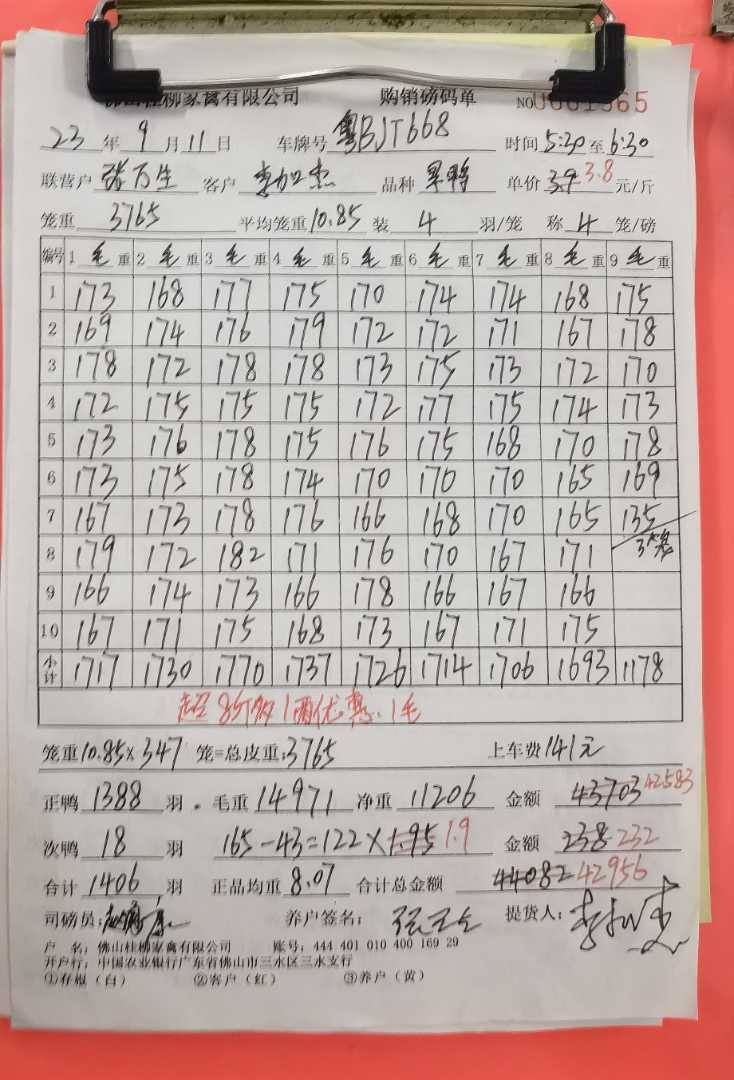 佛山桂柳家禽有限公司 购销磅码单 NO 0001365
23 年 9 月 11 日 车牌号 粤BJT668 时间 5:30 至 6:30
联营户 张万生 客户 李加杰 品种 果鸭 单价 3.9 3.8 元/斤
笼重 3765 平均笼重 10.85 装 4 羽/笼 称 4 笼/磅
编号 1 毛 重 2 毛 重 3 毛 重 4 毛 重 5 毛 重 6 毛 重 7 毛 重 8 毛 重 9 毛 重
1 173 168 177 175 170 174 174 168 175
2 169 174 176 179 172 172 171 167 178
3 178 172 178 178 173 175 173 172 170
4 172 175 175 175 172 177 175 174 173
5 173 176 178 175 176 175 168 170 178
6 173 175 178 174 170 170 170 165 169
7 167 173 178 176 166 168 170 165 135
8 179 172 182 171 176 170 167 171 3笼
9 166 174 173 166 178 166 167 166
10 167 171 175 168 173 167 171 175
小计 1717 1730 1770 1737 1726 1714 1706 1693 1178
超8斤多1两优惠.1毛
笼重 10.85 × 347 笼=总皮重: 3765 上车费 141元
正鸭 1388 羽. 毛重 14971 净重 11206 金额 43703 42583
次鸭 18 羽 165-43=122×1.95 1.9 金额 238 232
合计 1406 羽 正品均重 8.07 合计总金额 44082 42956
司磅员: 养户签名: 提货人: 李加杰
户 名: 佛山桂柳家禽有限公司 账号: 444 401 010 400 169 29
开户行: 中国农业银行广东省佛山市三水区三水支行
①存根(白) ②客户(红) ③养户(黄)